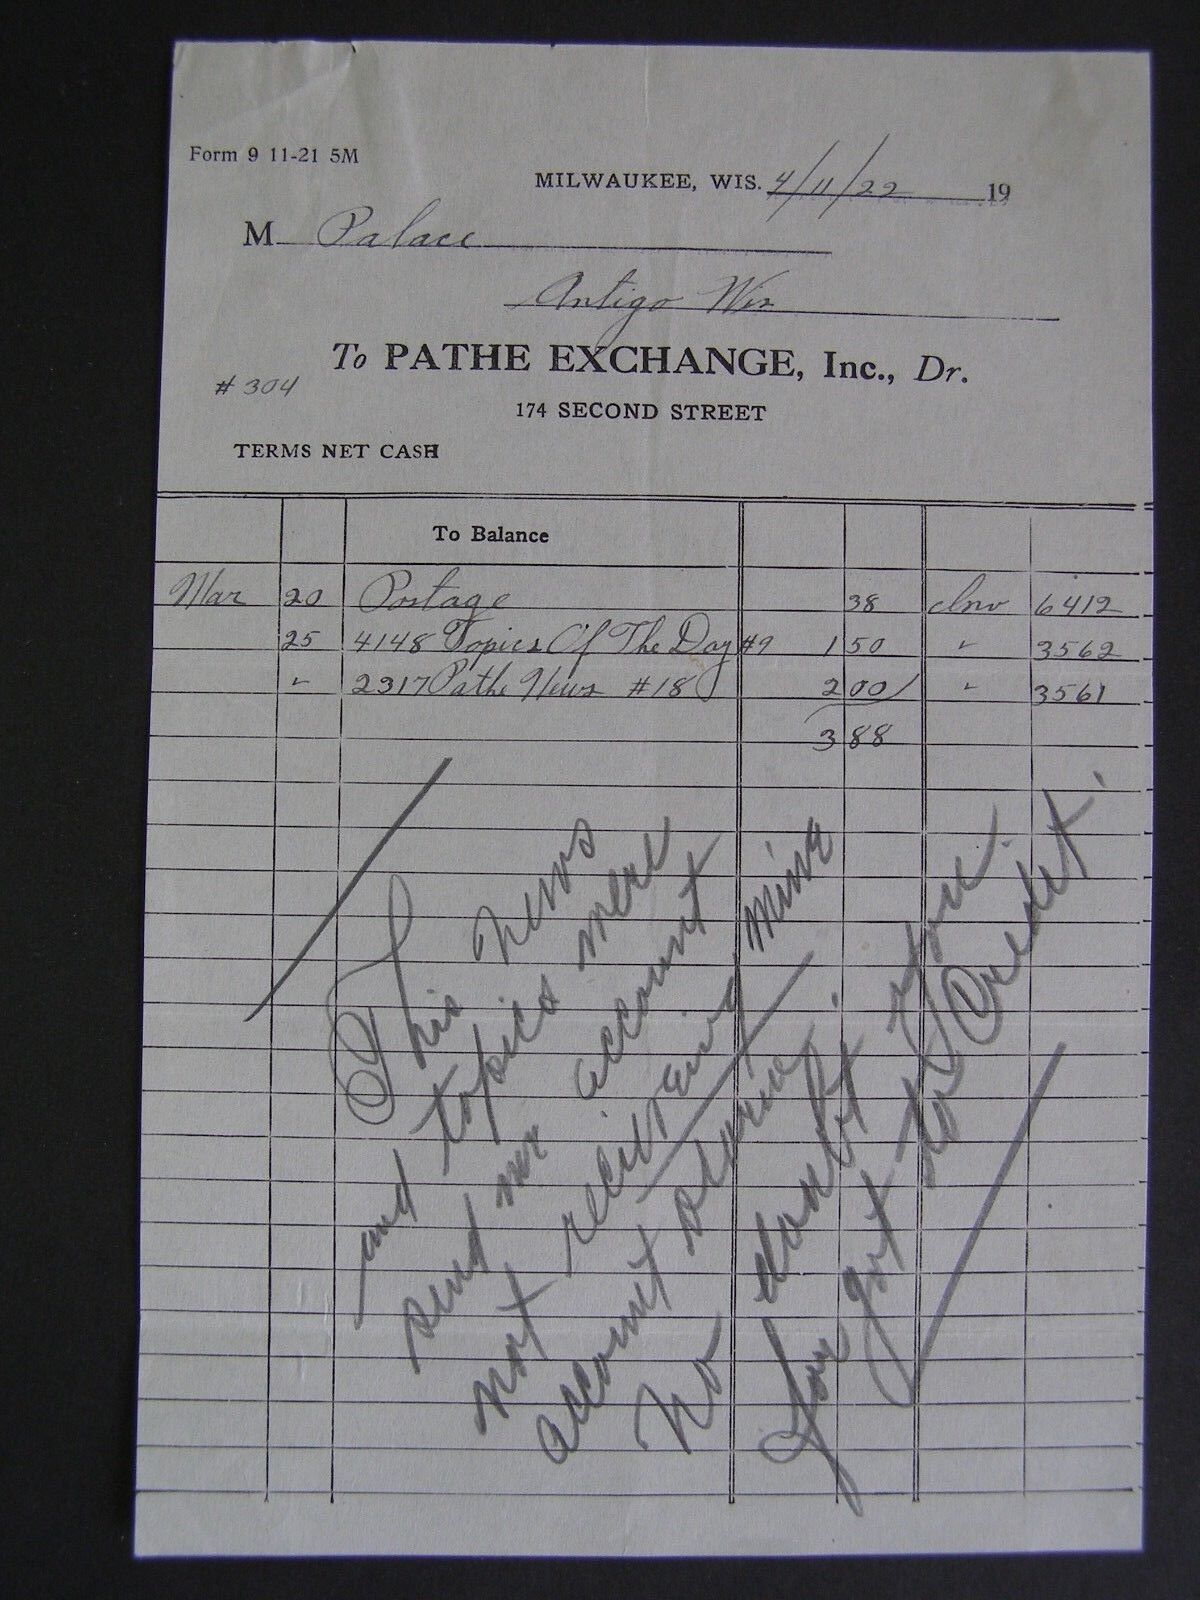 Form 9 11-21 5M
MILWAUKEE, WIS. 4/11/22 19
M Palace
Antigo Wis
To PATHE EXCHANGE, Inc., Dr.
# 304
174 SECOND STREET
TERMS NET CASH
To Balance
Mar 20 Postage 38 Inv 6412
25 4148 Topics Of The Day #9 1 50 " 3562
" 2317 Pathe News #18 2 00 " 3561
3 88
This news
and topics were
send me account
not receiveing mine
account storm.
No doubt you.
for got to Credit.